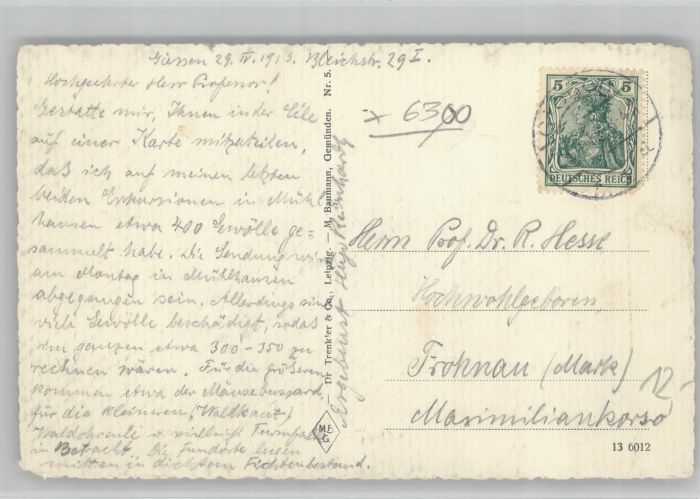 Giessen 29. IV. 1913. Bleichstr. 29 I.
Hochgeehrter Herr Professor!
Gestatte mir, Ihnen in der Eile
auf einer Karte mitzuteilen,
daß ich auf meinen letzten
beiden Exkursionen in Mühl
hausen etwa 400 Gewölle ge=
sammelt habe. Die Sendung wird
am Montag in Mühlhausen
abgegangen sein. Allerdings sind
viele Gewölle beschädigt, sodaß
im ganzen etwa 300-350 zu
rechnen wären. Für die größeren
kommen etwa der Mäusebussard,
für die kleineren (Waldkauz)
Waldohreule u. vielleicht Turmfalk
in Betracht. Die Fundorte liegen
mitten in dichtem Fichtenbestand.
Ergebenst Hugo
Dr Trenkler & Co., Leipzig. — M. Baumann, Gemünden. Nr. 5.
M.B.
G.
6300
5 5
DEUTSCHES REICH
Herrn Prof. Dr. R. Hesse
Hochwohlgeboren
Frohnau (Mark)
Maximiliankorso
12-
13 6012